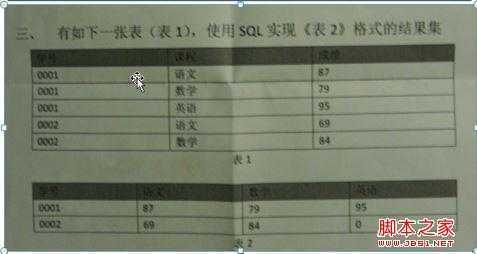 三、 有如下一张表（表1），使用SQL实现《表2》格式的结果集
学号 课程 成绩
0001 语文 87
0001 数学 79
0001 英语 95
0002 语文 69
0002 数学 84
表1
学号 语文 数学 英语
0001 87 79 95
0002 69 84 0
表2
脚本之家
www.jb51.net